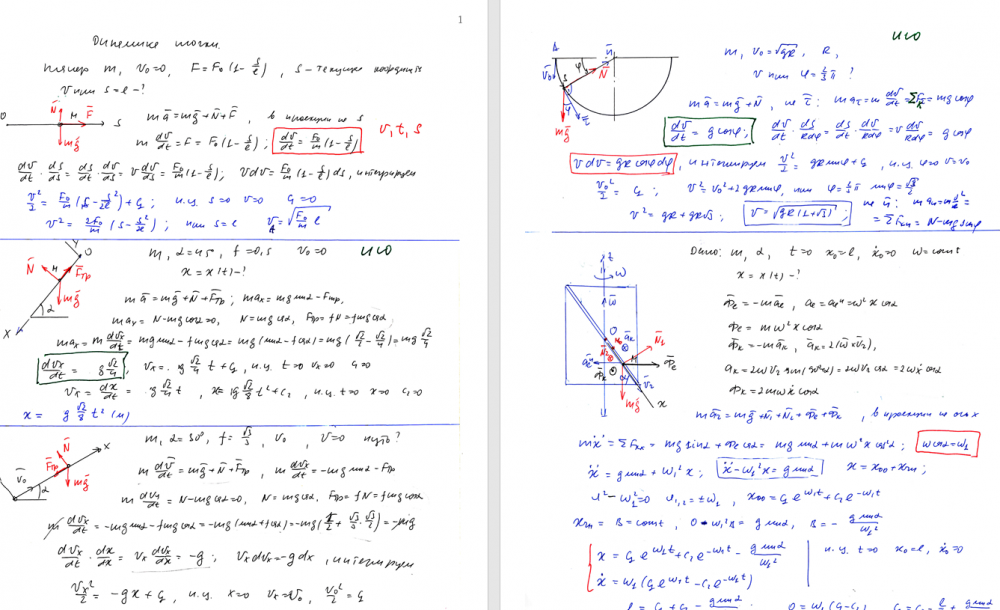 1
Динамика точки.
m, v₀=0, F=F₀(1-s/ℓ), s - текущая координата
v при s=ℓ -?
N̄ M F̄
O S
mḡ
mā=mḡ+N̄+F̄, в проекции на s
m dv/dt = F = F₀(1-s/ℓ); dv/dt = F₀/m (1-s/ℓ) v, t, s
dv/dt · ds/ds = ds/dt · dv/ds = v dv/ds = F₀/m (1-s/ℓ); v dv = F₀/m (1-s/ℓ) ds, интегрируем
v²/2 = F₀/m (s - s²/2ℓ) + C₁; н.у. s=0 v=0 C₁=0
v² = 2F₀/m (s - s²/2ℓ); при s=ℓ v = √(F₀/m ℓ)
m, α=45, f=0,5 v₀=0 ИСО
x = x(t) -?
O N̄ M F̄тр
mḡ α X
mā=mḡ+N̄+F̄тр; maₓ=mg sinα-Fтр,
N-mg cosα=0, N=mg cosα, Fтр=fN=fmg cosα
maₓ = m dvₓ/dt = mg sinα - fmg cosα = mg(sinα - f cosα) = mg(√2/2 - √2/4) = mg √2/4
dvₓ/dt = g √2/4, vₓ = g √2/4 t + C₁, н.у. t=0 vₓ=0 C₁=0
vₓ = dx/dt = g √2/4 t, x = g √2/8 t² + C₂, н.у. t=0 x=0 C₂=0
x = g √2/8 t² (м)
m, α=30°, f=, v₀, v=0 путь?
N̄ F̄тр x
v̄₀ α mḡ
m dv̄/dt = mḡ+N̄+F̄тр, m dvₓ/dt = -mg sinα - Fтр
N-mg cosα=0, N=mg cosα, Fтр=fN=fmg cosα
m dvₓ/dt = -mg sinα - fmg cosα = -mg(sinα + f cosα) = -mg
dvₓ/dt · dx/dx = vₓ dvₓ/dx = -g; vₓ dvₓ = -g dx, интегрируем
vₓ²/2 = -gx + C₁, н.у. x=0 vₓ=v₀, v₀²/2 = C₁
ИСО
m, v₀=√gR, R,
v при φ=
A φ n̄ N̄
v̄₀ s
mḡ τ̄
mā=mḡ+N̄, на τ̄: maτ = m dv/dt = mg cosφ
dv/dt = g cosφ; dv/dt · ds/Rdφ = ds/dt · dv/Rdφ = v dv/Rdφ = g cosφ
v dv = gR cosφ dφ, интегрируем v²/2 = gR sinφ + C₁, н.у. φ=0 v=v₀
v₀²/2 = C₁; v² = v₀² + 2gR sinφ, при φ= sinφ=√3/2
v² = gR + gR√3; v = √gR(1+√3);
= N - mg sinφ
Дано: m, α, t=0 x₀=ℓ, ẋ₀=0 ω=const
x = x(t) -?
z ω ω̄ O N̄₁ N̄₂ M āₖ Φ̄e Φ̄ₖ v̄₂ α mḡ x
Φ̄e = -māe, ae = ω² x cosα
Φe = mω² x cosα
Φ̄ₖ = -māₖ, āₖ = 2(ω̄×v̄₂),
aₖ = 2ωv₂ sin(90°+α) = 2ωv₂ cosα = 2ωẋ cosα
Φₖ = 2mωẋ cosα
mā₂ = mḡ+N̄₁+N̄₂+Φ̄e+Φ̄ₖ, в проекции на ось x
mẍ = ΣFₖₓ = mg sinα + Φe cosα = mg sinα + mω² x cos²α; ω cosα = ω₁
ẍ = g sinα + ω₁² x; ẍ - ω₁² x = g sinα x = x₀₀ + xчн;
λ² - ω₁² = 0 λ₁,₂ = ±ω₁, x₀₀ = C₁ e^ω₁t + C₂ e^-ω₁t
xчн = B = const, 0 - ω₁² B = g sinα, B = - g sinα/ω₁²
x = C₁ e^ω₁t + C₂ e^-ω₁t - g sinα/ω₁² н.у. t=0 x₀=ℓ, ẋ₀=0
ẋ = ω₁(C₁ e^ω₁t - C₂ e^-ω₁t)